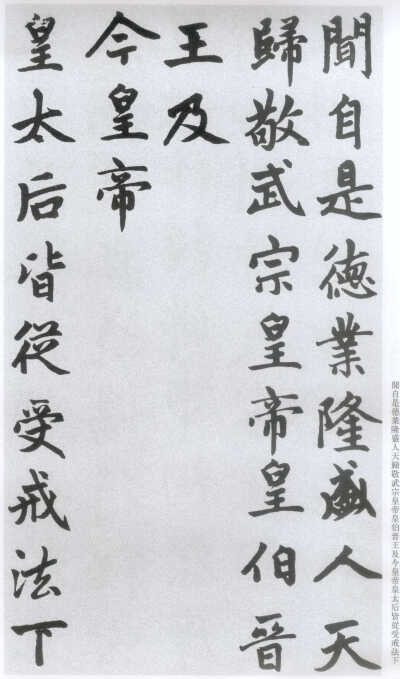 聞自是德業隆盛人天
歸敬武宗皇帝皇伯晉
王及
今皇帝
皇太后皆從受戒法下
聞自是德業隆盛人天歸敬武宗皇帝皇伯晉王及今皇帝皇太后皆從受戒法下